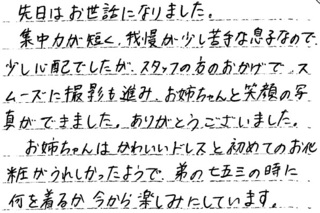 先日はお世話になりました。
集中力が短く、我慢が少し苦手な息子なので
少し心配でしたが、スタッフの方のおかげで、ス
ムーズに撮影も進み、お姉ちゃんと笑顔の写
真ができました。ありがとうございました。
お姉ちゃんはかわいいドレスと初めてのお化
粧がうれしかったようで、弟の七五三の時に
何を着るか今から楽しみにしています。